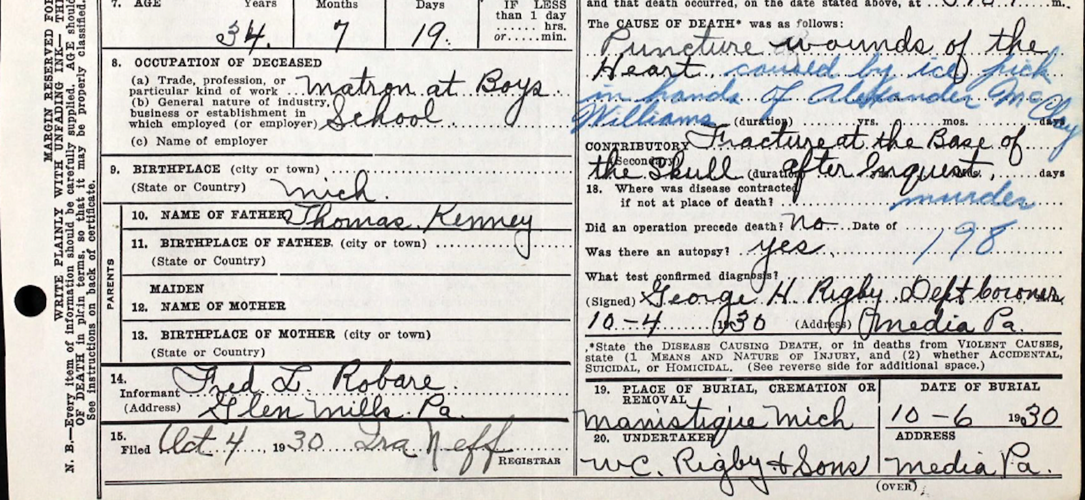 MARGIN RESERVED FOR
WRITE PLAINLY WITH UNFADING INK—THIS
N. B.—Every item of information should be carefully supplied. AGE should
OF DEATH in plain terms, so that it may be properly classified.
See instructions on back of certificate.
7. AGE Years Months Days IF LESS
than 1 day
hrs.
or min.
34 7 19
8. OCCUPATION OF DECEASED
(a) Trade, profession, or
particular kind of work Matron at Boys
(b) General nature of industry,
business or establishment in
which employed (or employer) School
(c) Name of employer
9. BIRTHPLACE (city or town)
(State or Country) Mich.
PARENTS
10. NAME OF FATHER Thomas Kenney
11. BIRTHPLACE OF FATHER (city or town)
(State or Country)
MAIDEN
12. NAME OF MOTHER
13. BIRTHPLACE OF MOTHER (city or town)
(State or Country)
14.
Informant Fred L. Robare
(Address) Glen Mills Pa.
15.
Filed Oct 4, 1930 Ira Neff
REGISTRAR
and that death occurred, on the date stated above, at m.
The CAUSE OF DEATH* was as follows:
Puncture wounds of the
Heart caused by ice pick
in hands of Alexander McClay
Williams (duration) yrs. mos. days
CONTRIBUTORY Fracture at the Base of
(Secondary)
the Skull (duration) After Inquest, days
18. Where was disease contracted
if not at place of death? murder
Did an operation precede death? No Date of
Was there an autopsy? yes 198
What test confirmed diagnosis?
(Signed) George H. Rigby Dept Coroner
10-4 1930 (Address) Media Pa.
*State the DISEASE CAUSING DEATH, or in deaths from VIOLENT CAUSES,
state (1 MEANS AND NATURE OF INJURY, and (2) whether ACCIDENTAL,
SUICIDAL, or HOMICIDAL. (See reverse side for additional space.)
19. PLACE OF BURIAL, CREMATION OR
REMOVAL
Manistique Mich
DATE OF BURIAL
10-6 1930
20. UNDERTAKER
W.C. Rigby & Sons
ADDRESS
Media Pa.
(OVER)